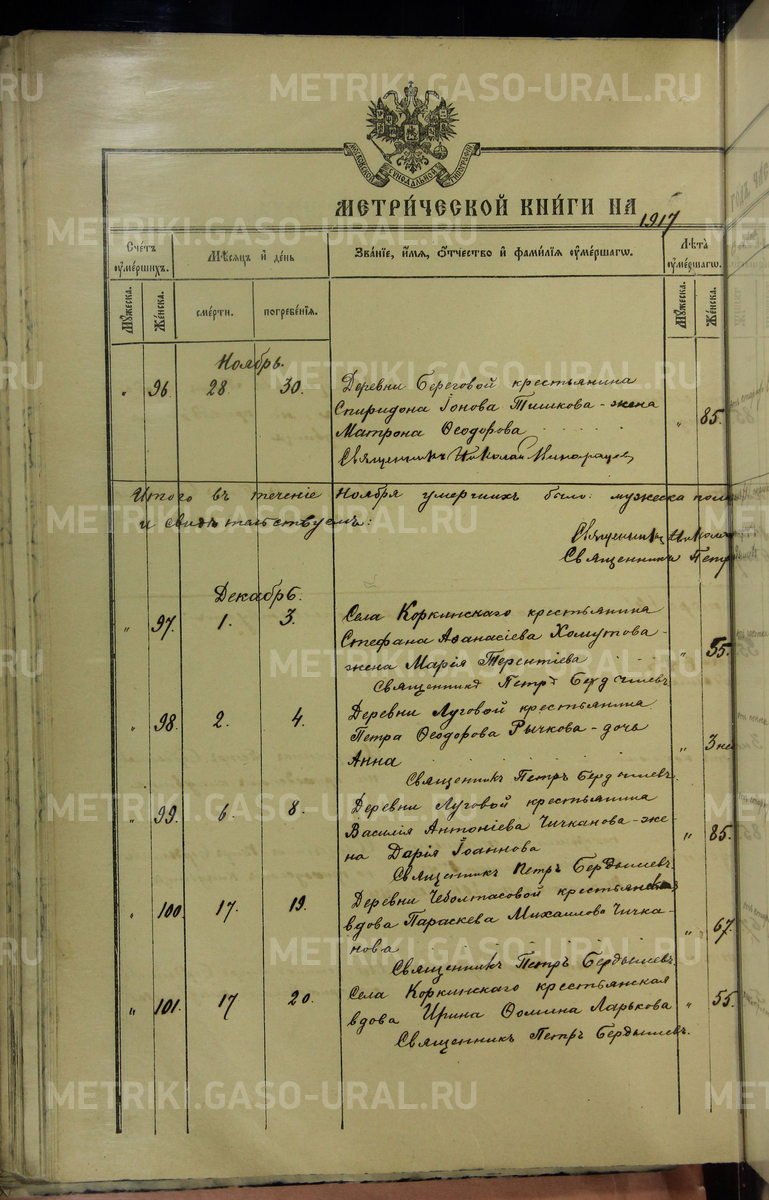 METRIKI.GASO-URAL.RU
МОСКОВСКОЙ СѴНОДАЛЬНОЙ ТИПОГРАФІИ
МЕТРИ́ЧЕСКОЙ КНИ́ГИ НА 1917
Сче́тъ ᲂу҆ме́ршихъ.
Мѣ́сяцъ и҆ де́нь
Зва́нїе, и҆́мѧ, ѻ҆́тчество и҆ фами́лїѧ ᲂу҆ме́ршагѡ.
Лѣ́та ᲂу҆ме́ршагѡ.
Мꙋ́жеска.
Же́нска.
сме́рти.
погребе́нїѧ.
Мꙋ́жеска.
Же́нска.
Ноябрь.
" 96. 28 30. Деревни Береговой крестьянина
Спиридона Іонова Тишкова - жена
Матрона Ѳеодорова " 85.
Священникъ Николай
Итого въ теченіе Ноября умершихъ было: мужеска пола
и свидѣтельствуемъ:
Священникъ Никола
Священникъ Петр
Декабрь.
" 97. 1. 3. Села Коркинскаго крестьянина
Стефана Аѳанасіева Хомутова -
жена Марія Терентіева " 55.
Священникъ Петръ Бердышевъ
" 98. 2. 4. Деревни Луговой крестьянина
Петра Ѳеодорова Рычкова - дочь
Анна " 3 не
Священникъ Петръ Бердышевъ.
" 99. 6. 8. Деревни Луговой крестьянина
Василія Антоніева Чичканова - же-
на Дарія Іоаннова " 85.
Священникъ Петръ Бердышевъ
" 100. 17. 19. Деревни Чеболтасовой крестьянская
вдова Параскева Михаилова Чичка-
нова " 67.
Священникъ Петръ Бердышевъ.
" 101. 17 20. Села Коркинскаго крестьянская
вдова Ирина Ѳомина Ларькова " 55.
Священникъ Петръ Бердышевъ.